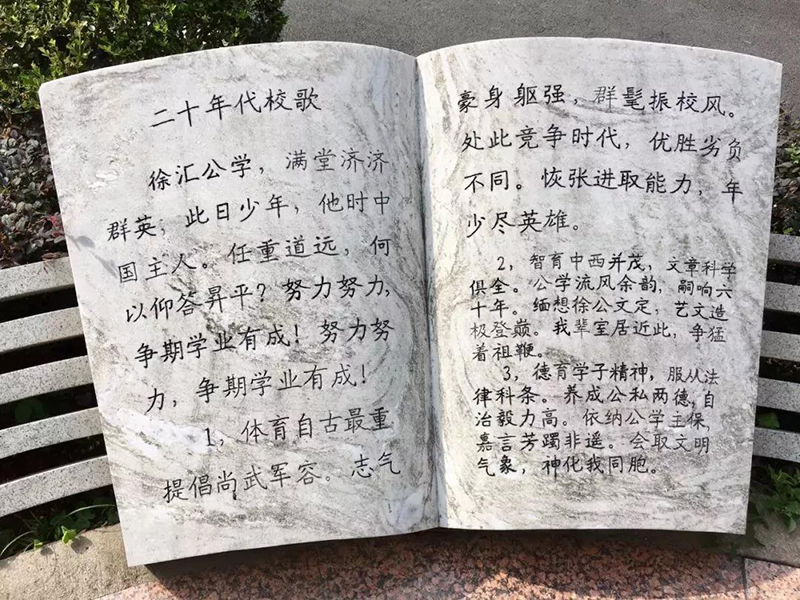 二十年代校歌
徐汇公学，满堂济济
群英；此日少年，他时中
国主人。任重道远，何
以仰答昇平？努力努力，
争期学业有成！努力努
力，争期学业有成！
1，体育自古最重
提倡尚武军容。志气
豪身躯强，群髦振校风。
处此竞争时代，优胜劣负
不同。恢张进取能力，年
少尽英雄。
2，智育中西并茂，文章科学
俱全。公学流风余韵，嗣响六
十年。缅想徐公文定，艺文造
极登巅。我辈室居近此，争猛
着祖鞭。
3，德育学子精神，服从法
律科条。养成公私两德，自
治毅力高。依纳公学主保，
嘉言芳躅非遥。会取文明
气象，神化我同胞。